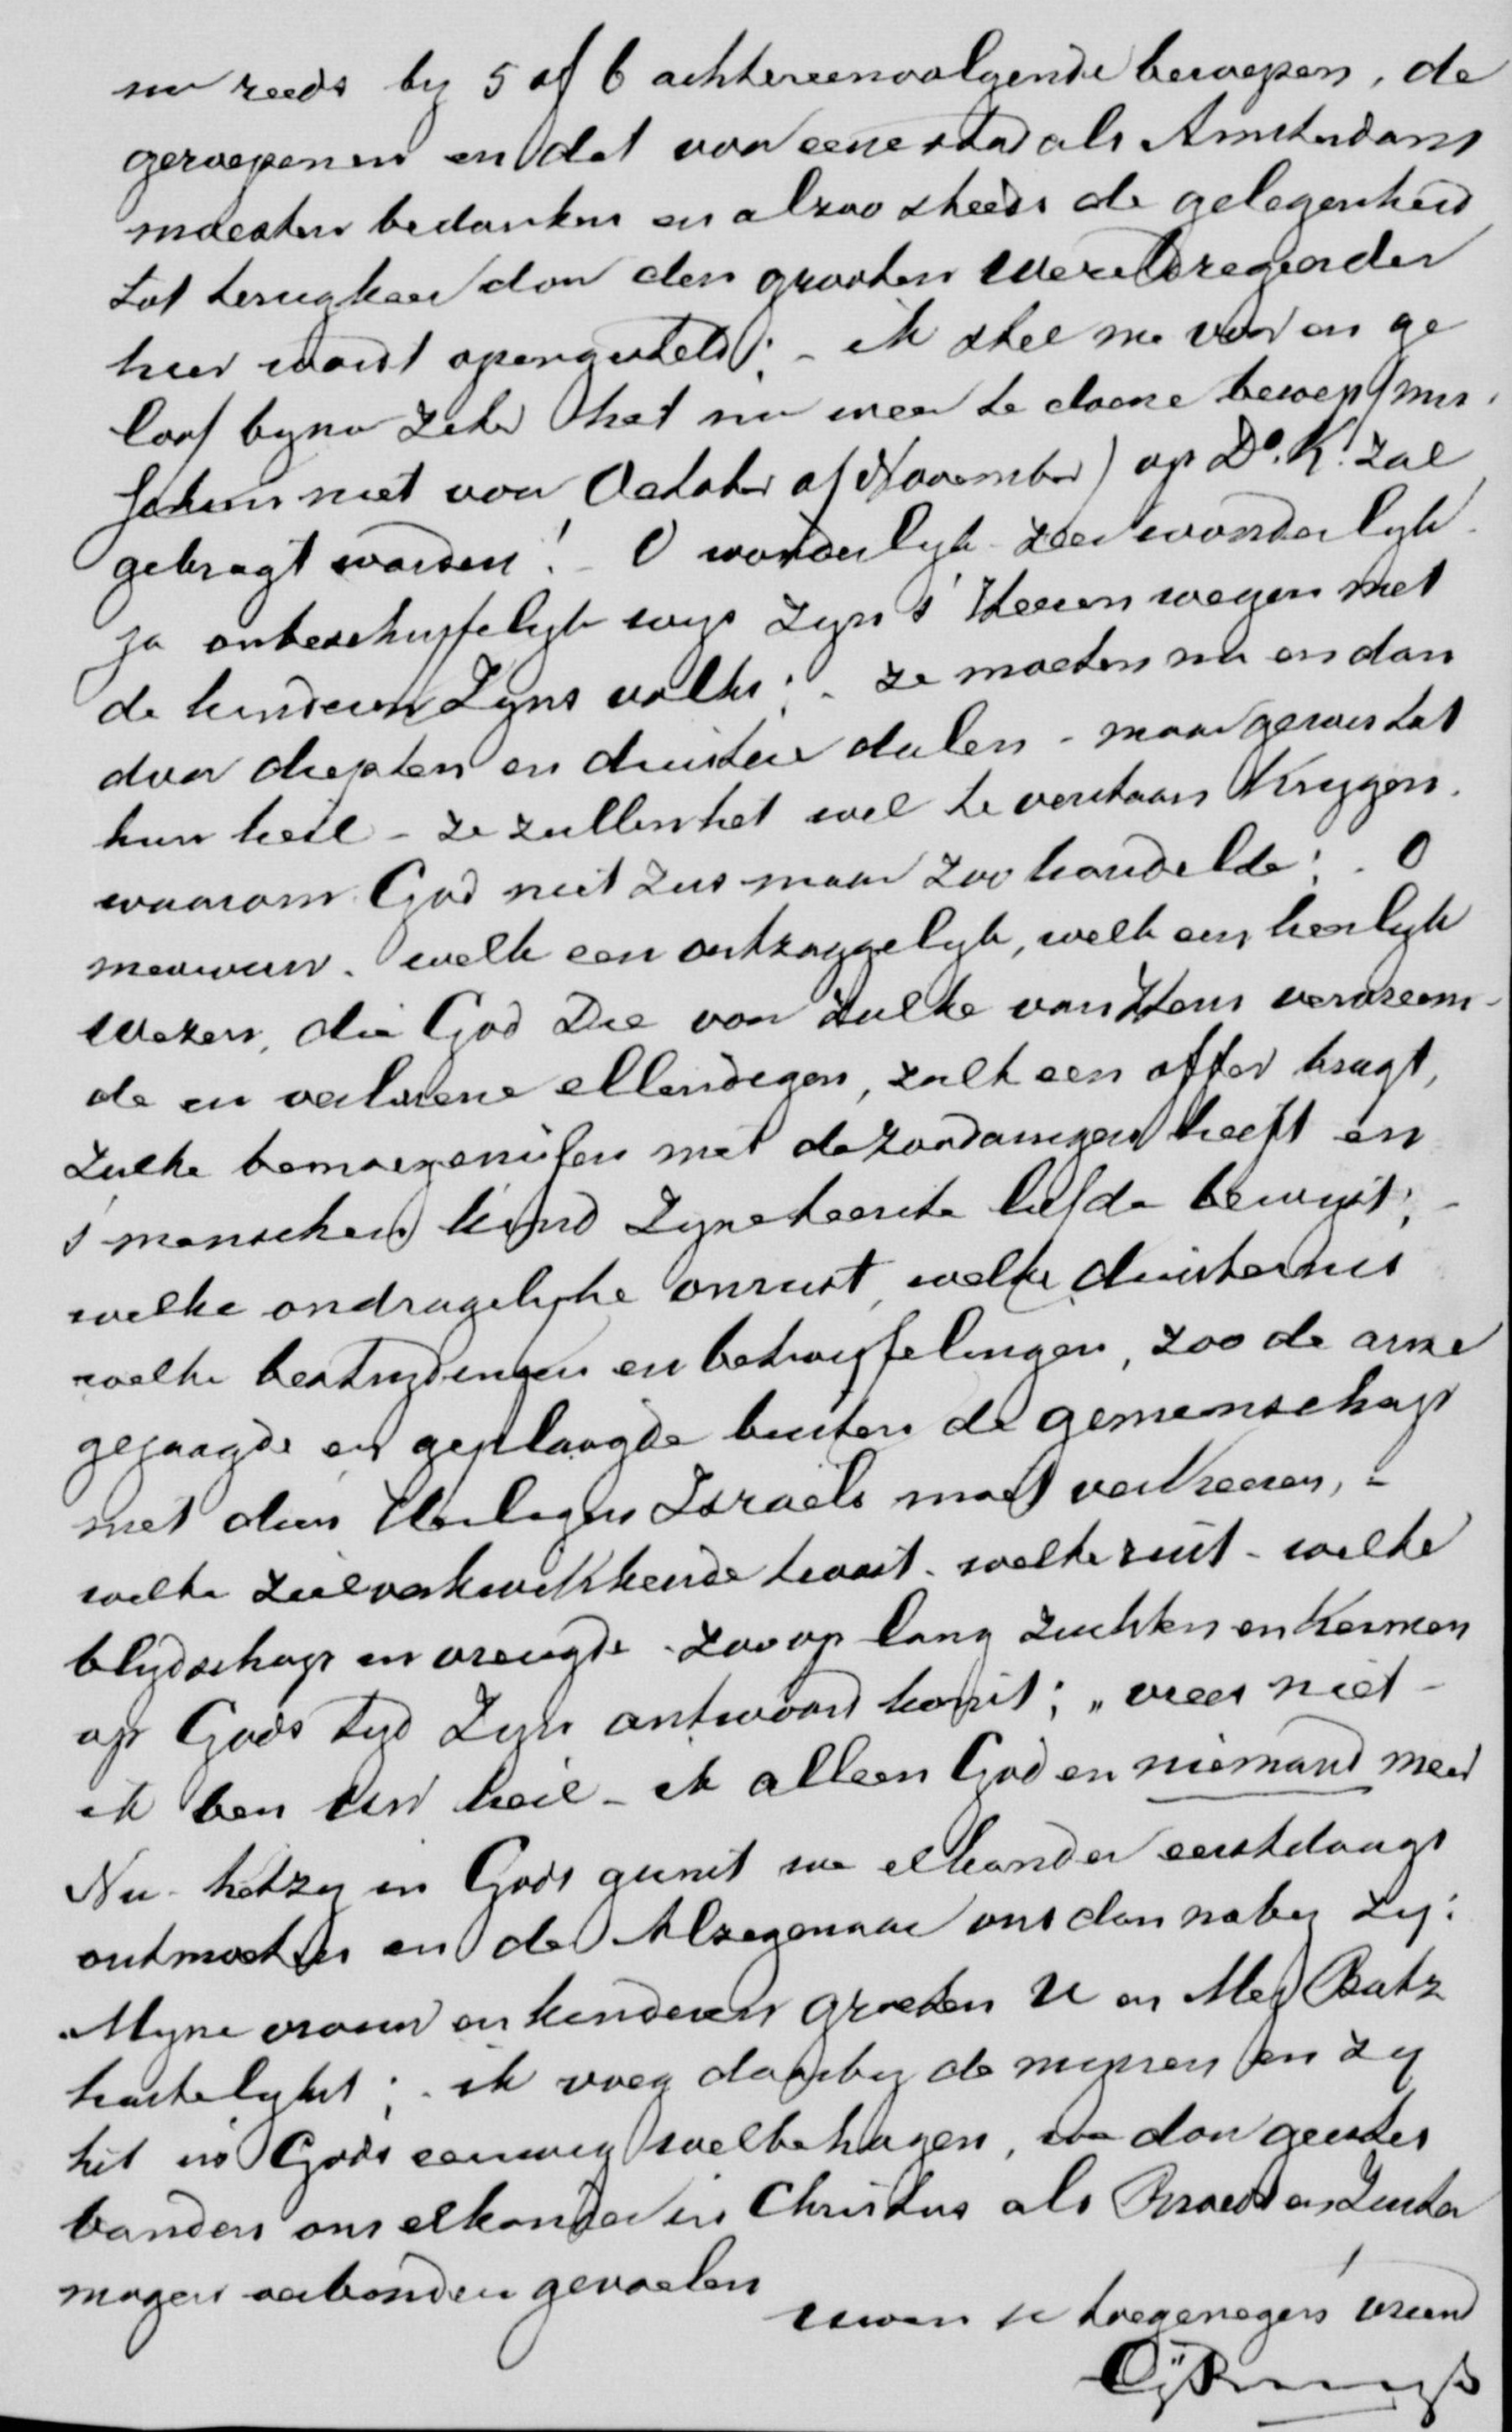 nu reeds by 5 of 6 achtereenvolgende beroepen, de
geroepenen en dat voor eene stad als Amsterdam
moesten bedanken en alzoo steeds de gelegenheid
tot terugkeer door den grooten Wereldregeerder
hier wordt opengesteld; - ik stel me voor en ge
loof byna zeker het nu weer te doene beroep (mis-
schien niet voor October of November) op Ds. K. zal
gebragt worden! - O wonderlyk - zeer wonderlyk -
ja onbeschryfelyk wys zyn s' Heeren wegen met
de kinderen Zyns volks; - ze moeten nu en dan
door diepten en duistere dalen - maar gewis tot
hun heil - ze zullen het wel te verstaan krygen.
waarom God niet zus maar zoo handelde; - O
mevrouw. welk een ontzaggelyk, welk een heerlyk
Wezen, die God Die voor zulke van Hem vervreem-
de en verlorene ellendigen, zulk een offer bragt,
zulke bemoeyenissen met dezoodanigen heeft en
s' menschen kind Zyne teerste liefde bewyst; -
welke ondragelyke onrust, welke duisternis
welke bestrydingen en betwyfelingen, zoo de arme
gejaagde en geplaagde buiten de gemeenschap
met dien Heiligen Israels moet verkeeren, -
welke zielverkwikkende troost - welke rust - welke
blydschap en vreugde - zoo op lang zuchten en kermen
op Gods tyd Zyn antwoord komt; „vrees niet -
ik ben Uw heil - ik alleen God en niemand meer
Nu - hetzy in Gods gunst we elkander eerstdaags
ontmoeten en de Alzegenaar ons dan naby zy:
Myne vrouw en kinderen groeten U en Mej
hartelykst; - ik voeg daarby de mynen en zy
het in Gods eeuwig welbehagen, we door geestes
banden ons elkander in Christus als Broeder en Zuster
mogen verbonden gevoelen
Uwen u toegenegen vriend